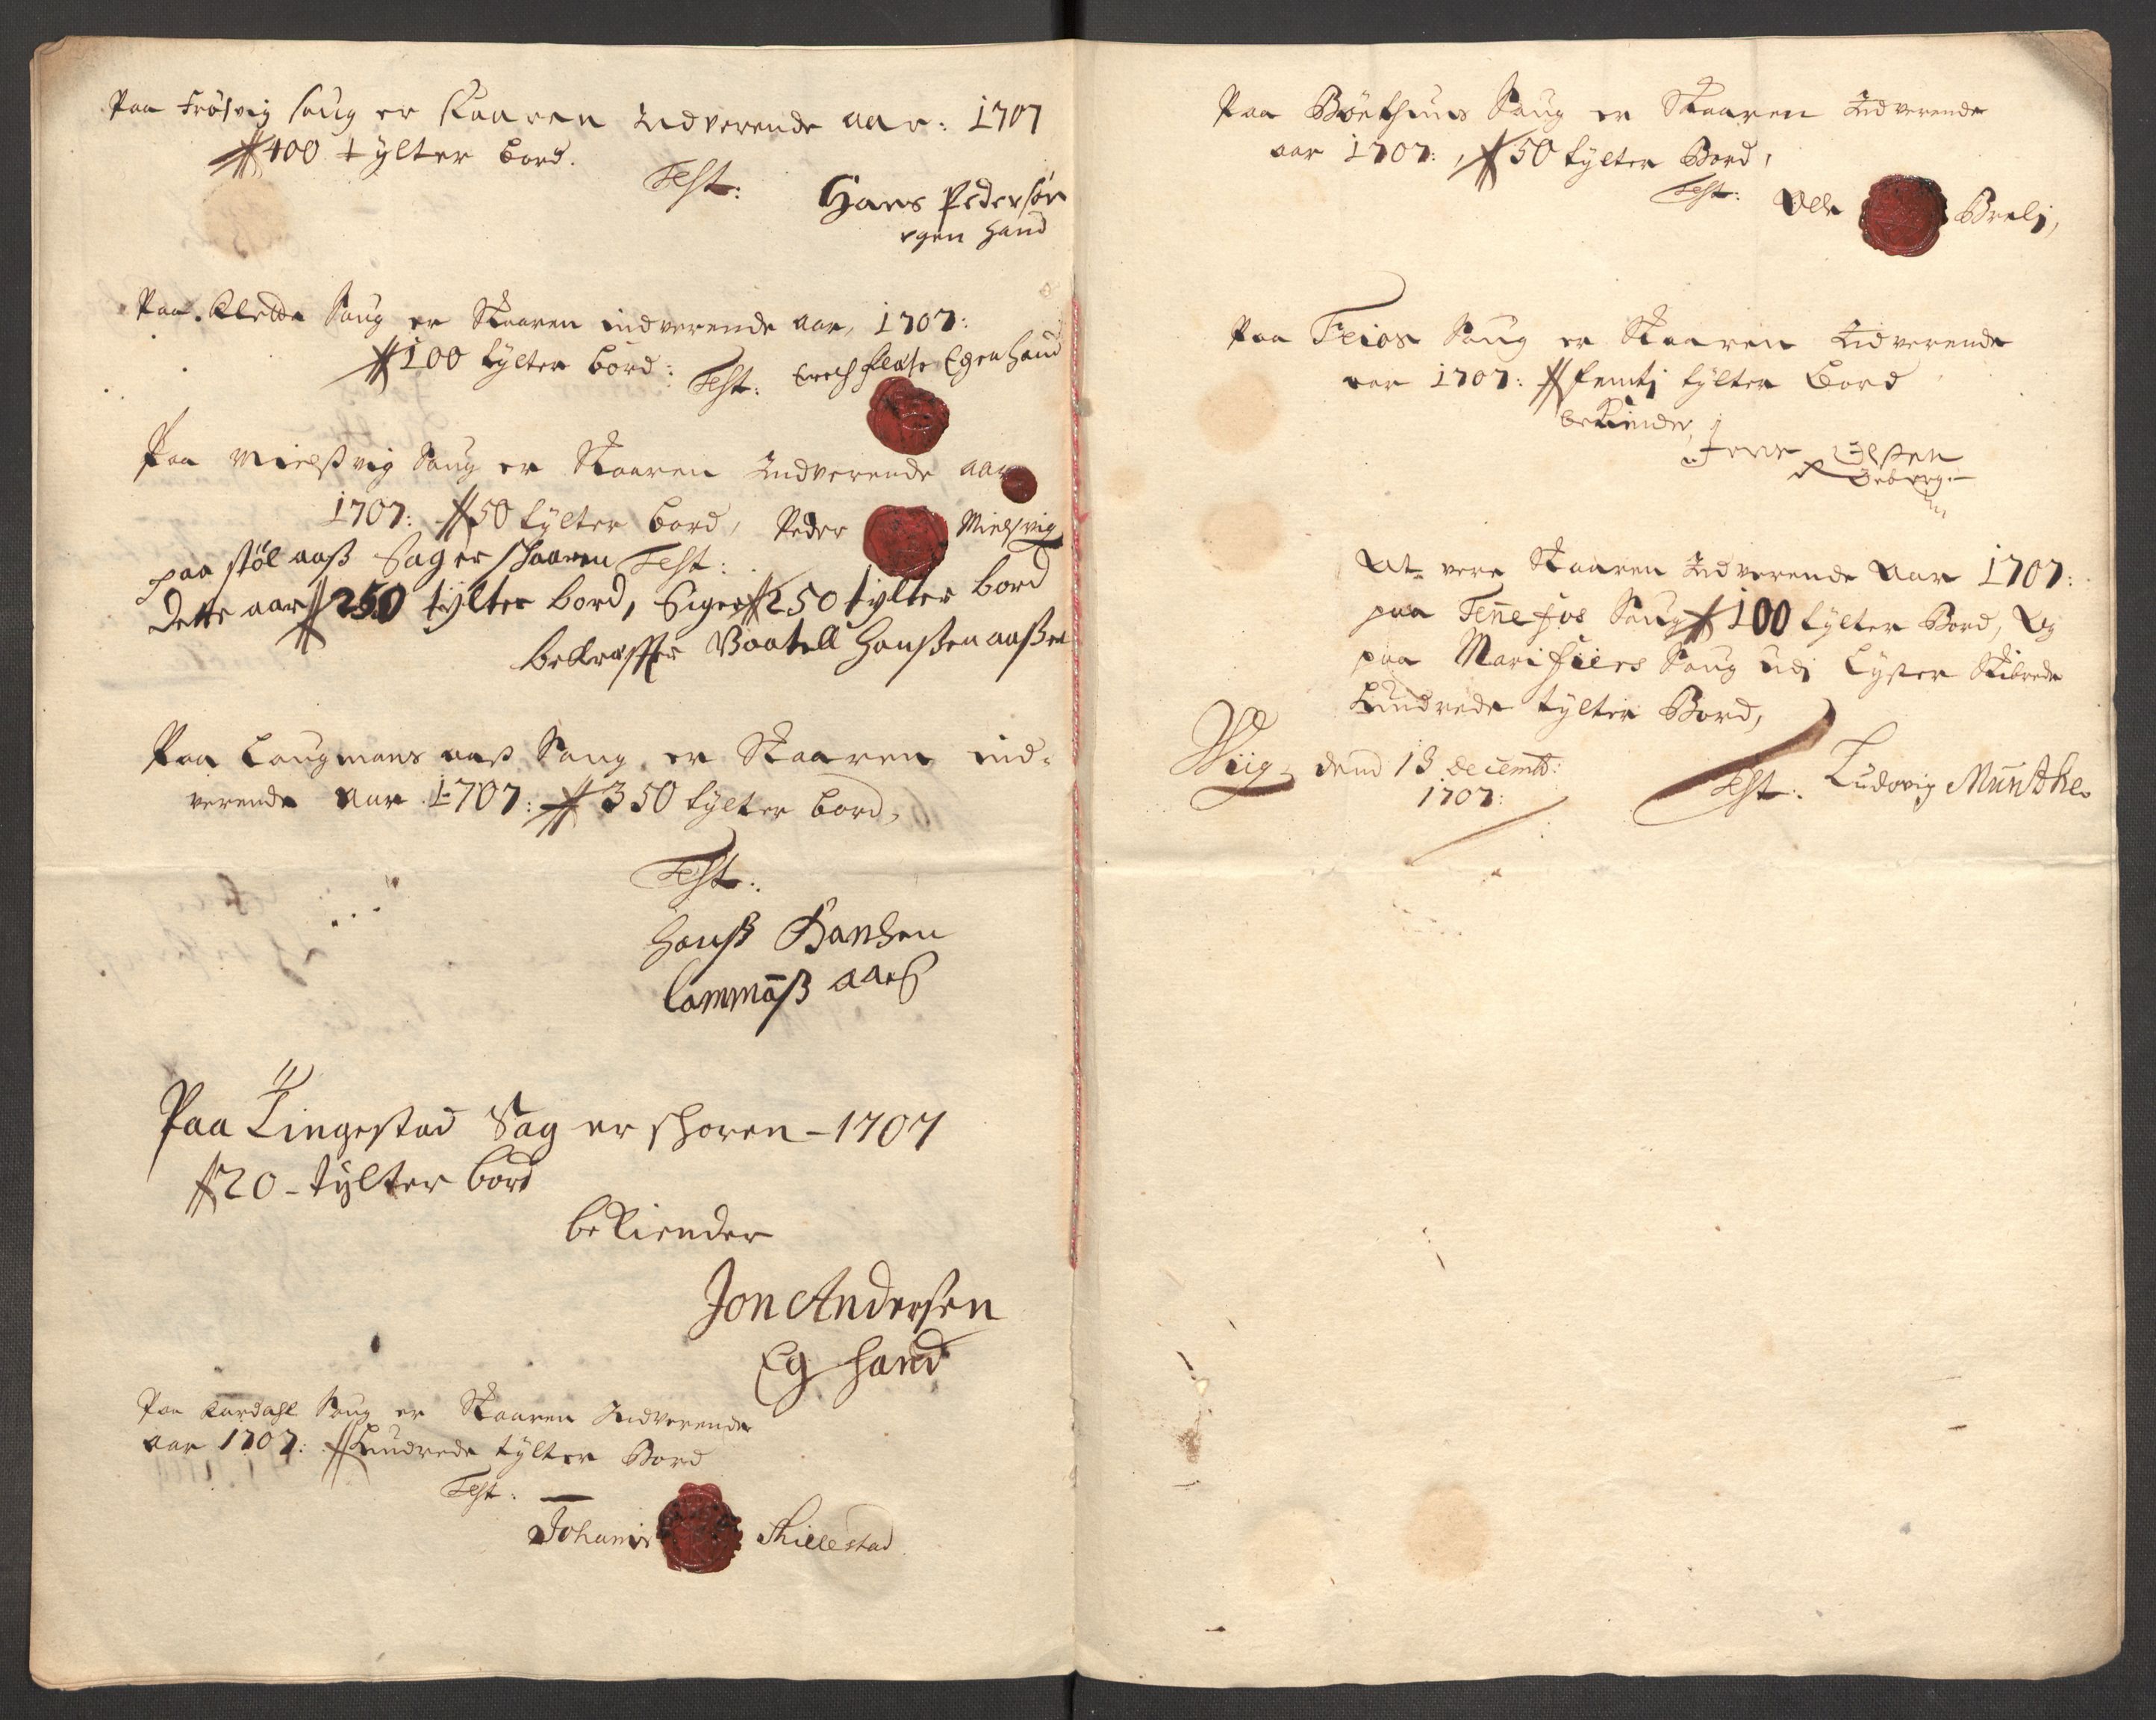 Paa Frøsvig Saug er skaaren Indverende aar: 1707
400 tylter bord.
Test:
Hans Pedersøn
egen Hand
Paa Klette Saug er Skaaren indverende aar, 1707:
100 tylter bord: Test: Erich Egen hand
Paa Mielsvig Saug er Skaaren Indverende aar
1707: 50 tylter bord, Peder Mielsvig
paa støl aaß Sag er skaaren Test:
dette aar 250 tylter bord, Siger 250 tylter bord
bekræffter Baatell Hanßen aaßen
Paa Laugmans aas Saug er Skaaren ind-
verende Aar 1707: 350 tylter bord,
Test:
Hanß Hanßen
Lammāß aaeß
Paa Lingestad Sag er skoren - 1707
20 - tylter bord
bekiender
Jon Andersen
Eg hand
Paa Aardahl Saug er Skaaren Indverende
aar 1707: Hundrede tylter Bord
Test:
Johanis Skiellestad
Paa Böethuns Saug er Skaaren Indverende
aar 1707:, 50 tylter Bord,
Test: Olle Breli,
Paa Feios Saug er Skaaren Indverende
aar 1707: femti tylter Bord
bekiender,
At vere Skaaren Indverende Aar 1707:
paa Tennefos Saug 100 tylter Bord, Og
paa Marifiers Saug udj Lyster Skibrede
Hundrede tylter Bord,
Wiig, dend 13 Decemb:
1707:
Test: Ludovig Munthe.